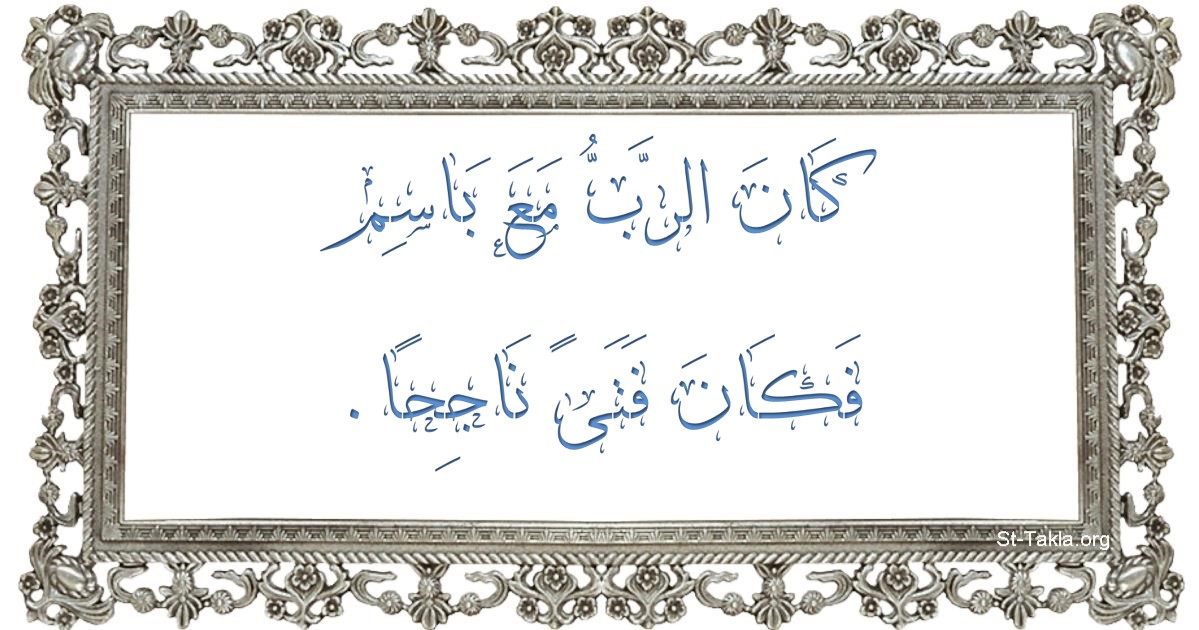 كَانَ الرَّبُّ مَعَ بَاسِمْ
فَكَانَ فَتَىً نَاجِحًا .
St-Takla.org